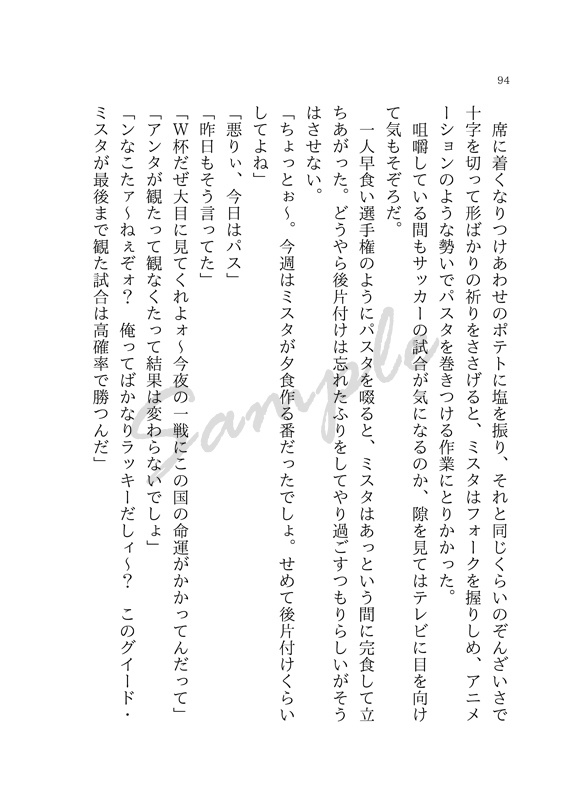 94
席に着くなりつけあわせのポテトに塩を振り、それと同じくらいのぞんざいさで
十字を切って形ばかりの祈りをささげると、ミスタはフォークを握りしめ、アニメ
ーションのような勢いでパスタを巻きつける作業にとりかかった。
咀嚼している間もサッカーの試合が気になるのか、隙を見てはテレビに目を向け
て気もそぞろだ。
一人早食い選手権のようにパスタを啜ると、ミスタはあっという間に完食して立
ちあがった。どうやら後片付けは忘れたふりをしてやり過ごすつもりらしいがそう
はさせない。
「ちょっとぉ～。今週はミスタが夕食作る番だったでしょ。せめて後片付けくらい
してよね」
「悪りぃ、今日はパス」
「昨日もそう言ってた」
「W杯だぜ大目に見てくれよォ～今夜の一戦にこの国の命運がかかってんだって」
「アンタが観たって観なくたって結果は変わらないでしょ」
「ンなこたァ～ねぇぞォ？　俺ってばかなりラッキーだしィ～？　このグイード・
ミスタが最後まで観た試合は高確率で勝つんだ」
Sample